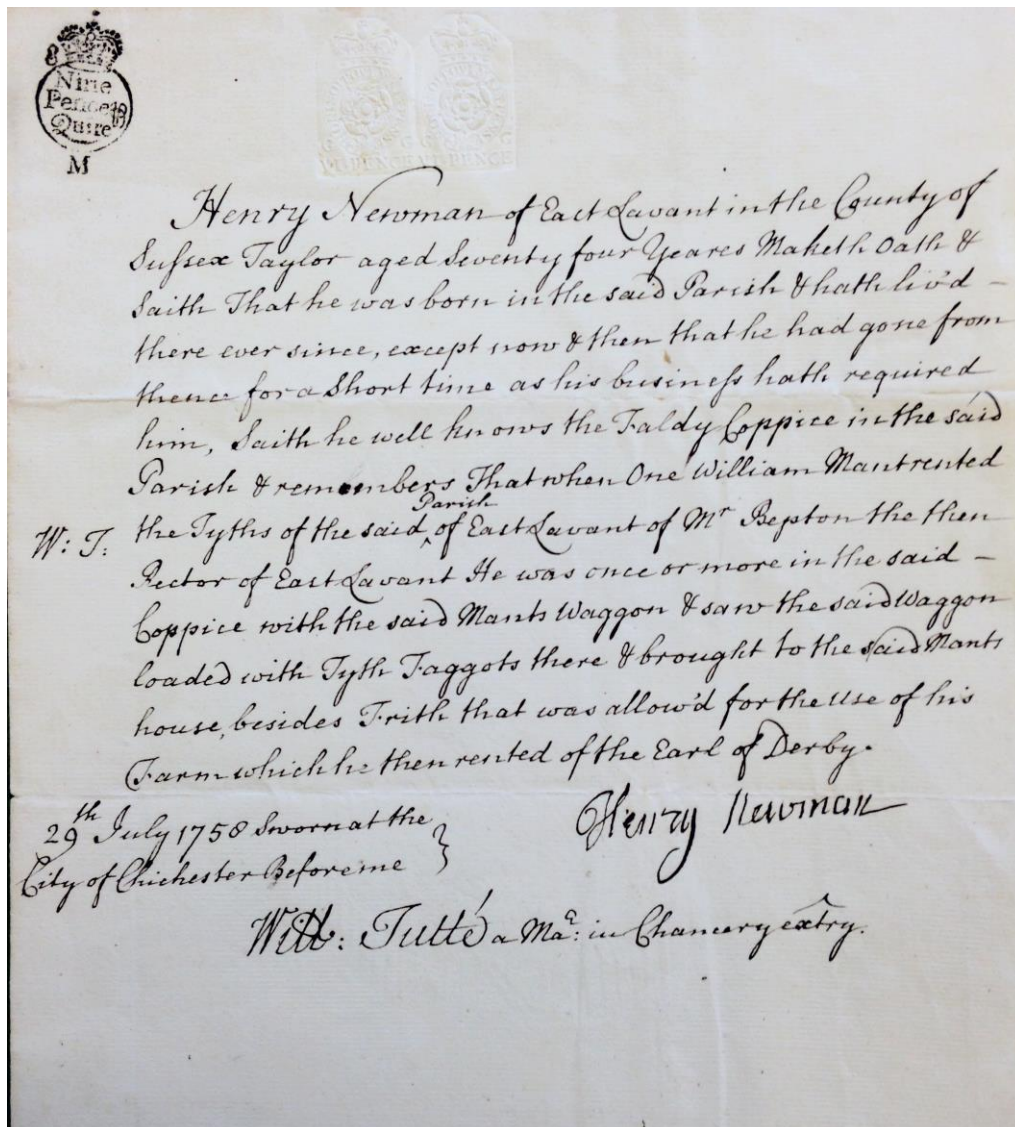 Nine
Pence
Quire
M
VI PENCE VI PENCE
Henry Newman of East Lavant in the County of
Sussex Taylor aged Seventy four Yeares Maketh Oath &
Saith That he was born in the said Parish & hath liv'd –
there ever since, except now & then that he had gone from
thence for a Short time as his business hath required
him, Saith he well knows the Faldy Coppice in the said
Parish & remembers That when One William Mant rented
W: T: the Tyths of the said ^ Parish of East Lavant of Mr Bepton the then
Rector of East Lavant He was once or more in the said –
Coppice with the said Mants Waggon & saw the said Waggon
loaded with Tyth Faggots there & brought to the said Mants
house, besides Frith that was allow'd for the Use of his
Farm which he then rented of the Earl of Derby.
29th July 1758 Sworn at the
City of Chichester Before me }
Henry Newman
Will: Tutté a Mar: in Chancery extry.